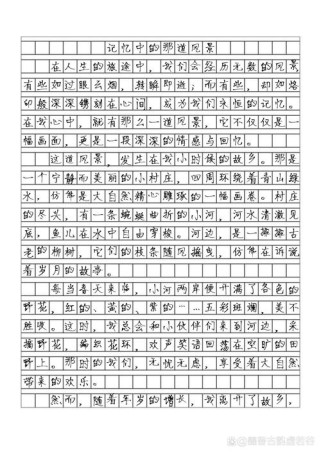 记忆中的那道风景
在人生的旅途中，我们会经历无数的风景，
有些如过眼云烟，转瞬即逝；而有些，却如烙
印般深深镌刻在心间，成为我们永恒的记忆。
在我心中，就有那么一道风景，它不仅仅是一
幅画面，更是一段深深的情感与回忆。
这道风景，发生在我小时候的故乡。那是
一个宁静而美丽的小村庄，四周环绕着青山绿
水，仿佛是大自然精心雕琢的一幅画卷。村庄
的尽头，有一条蜿蜒曲折的小河，河水清澈见
底，鱼儿在水中自由穿梭。河边，是一排排古
老的柳树，它们的枝条随风摇曳，仿佛在诉说
着岁月的故事。
每当春天来临，小河两岸便开满了各色的
野花，红的、黄的、紫的……五彩斑斓，美不
胜收。这时，我总会和小伙伴们来到河边，采
摘野花，编织花环，欢声笑语回荡在空旷的田
野上。那时的我们，无忧无虑，享受着大自然
带来的欢乐。
然而，随着年岁的增长，我离开了故乡，